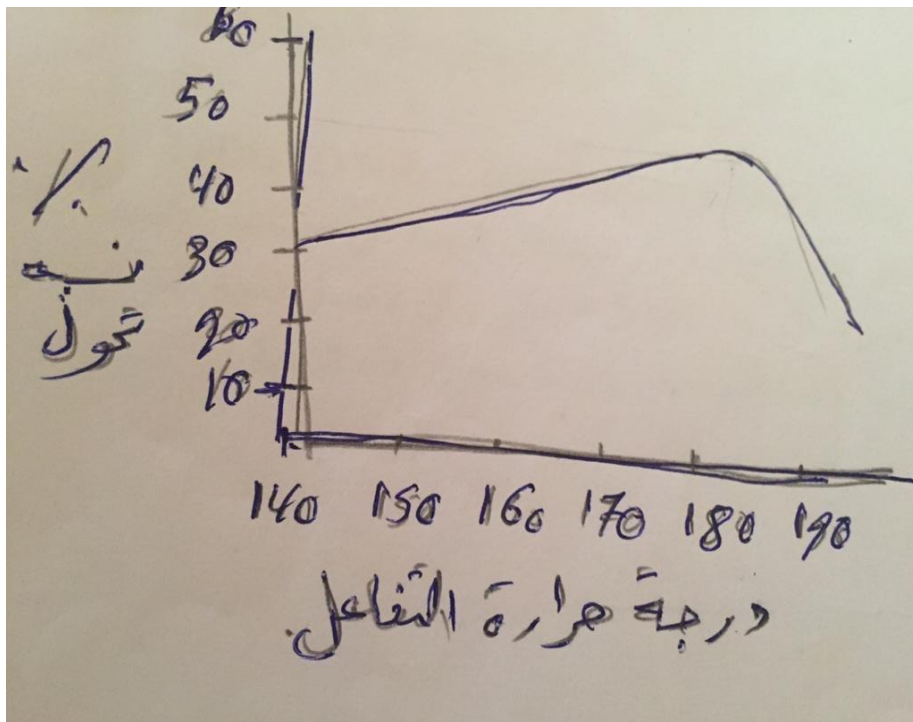 60
50
40
30
20
10
٪
تحول
140 150 160 170 180 190
درجة حرارة التفاعل